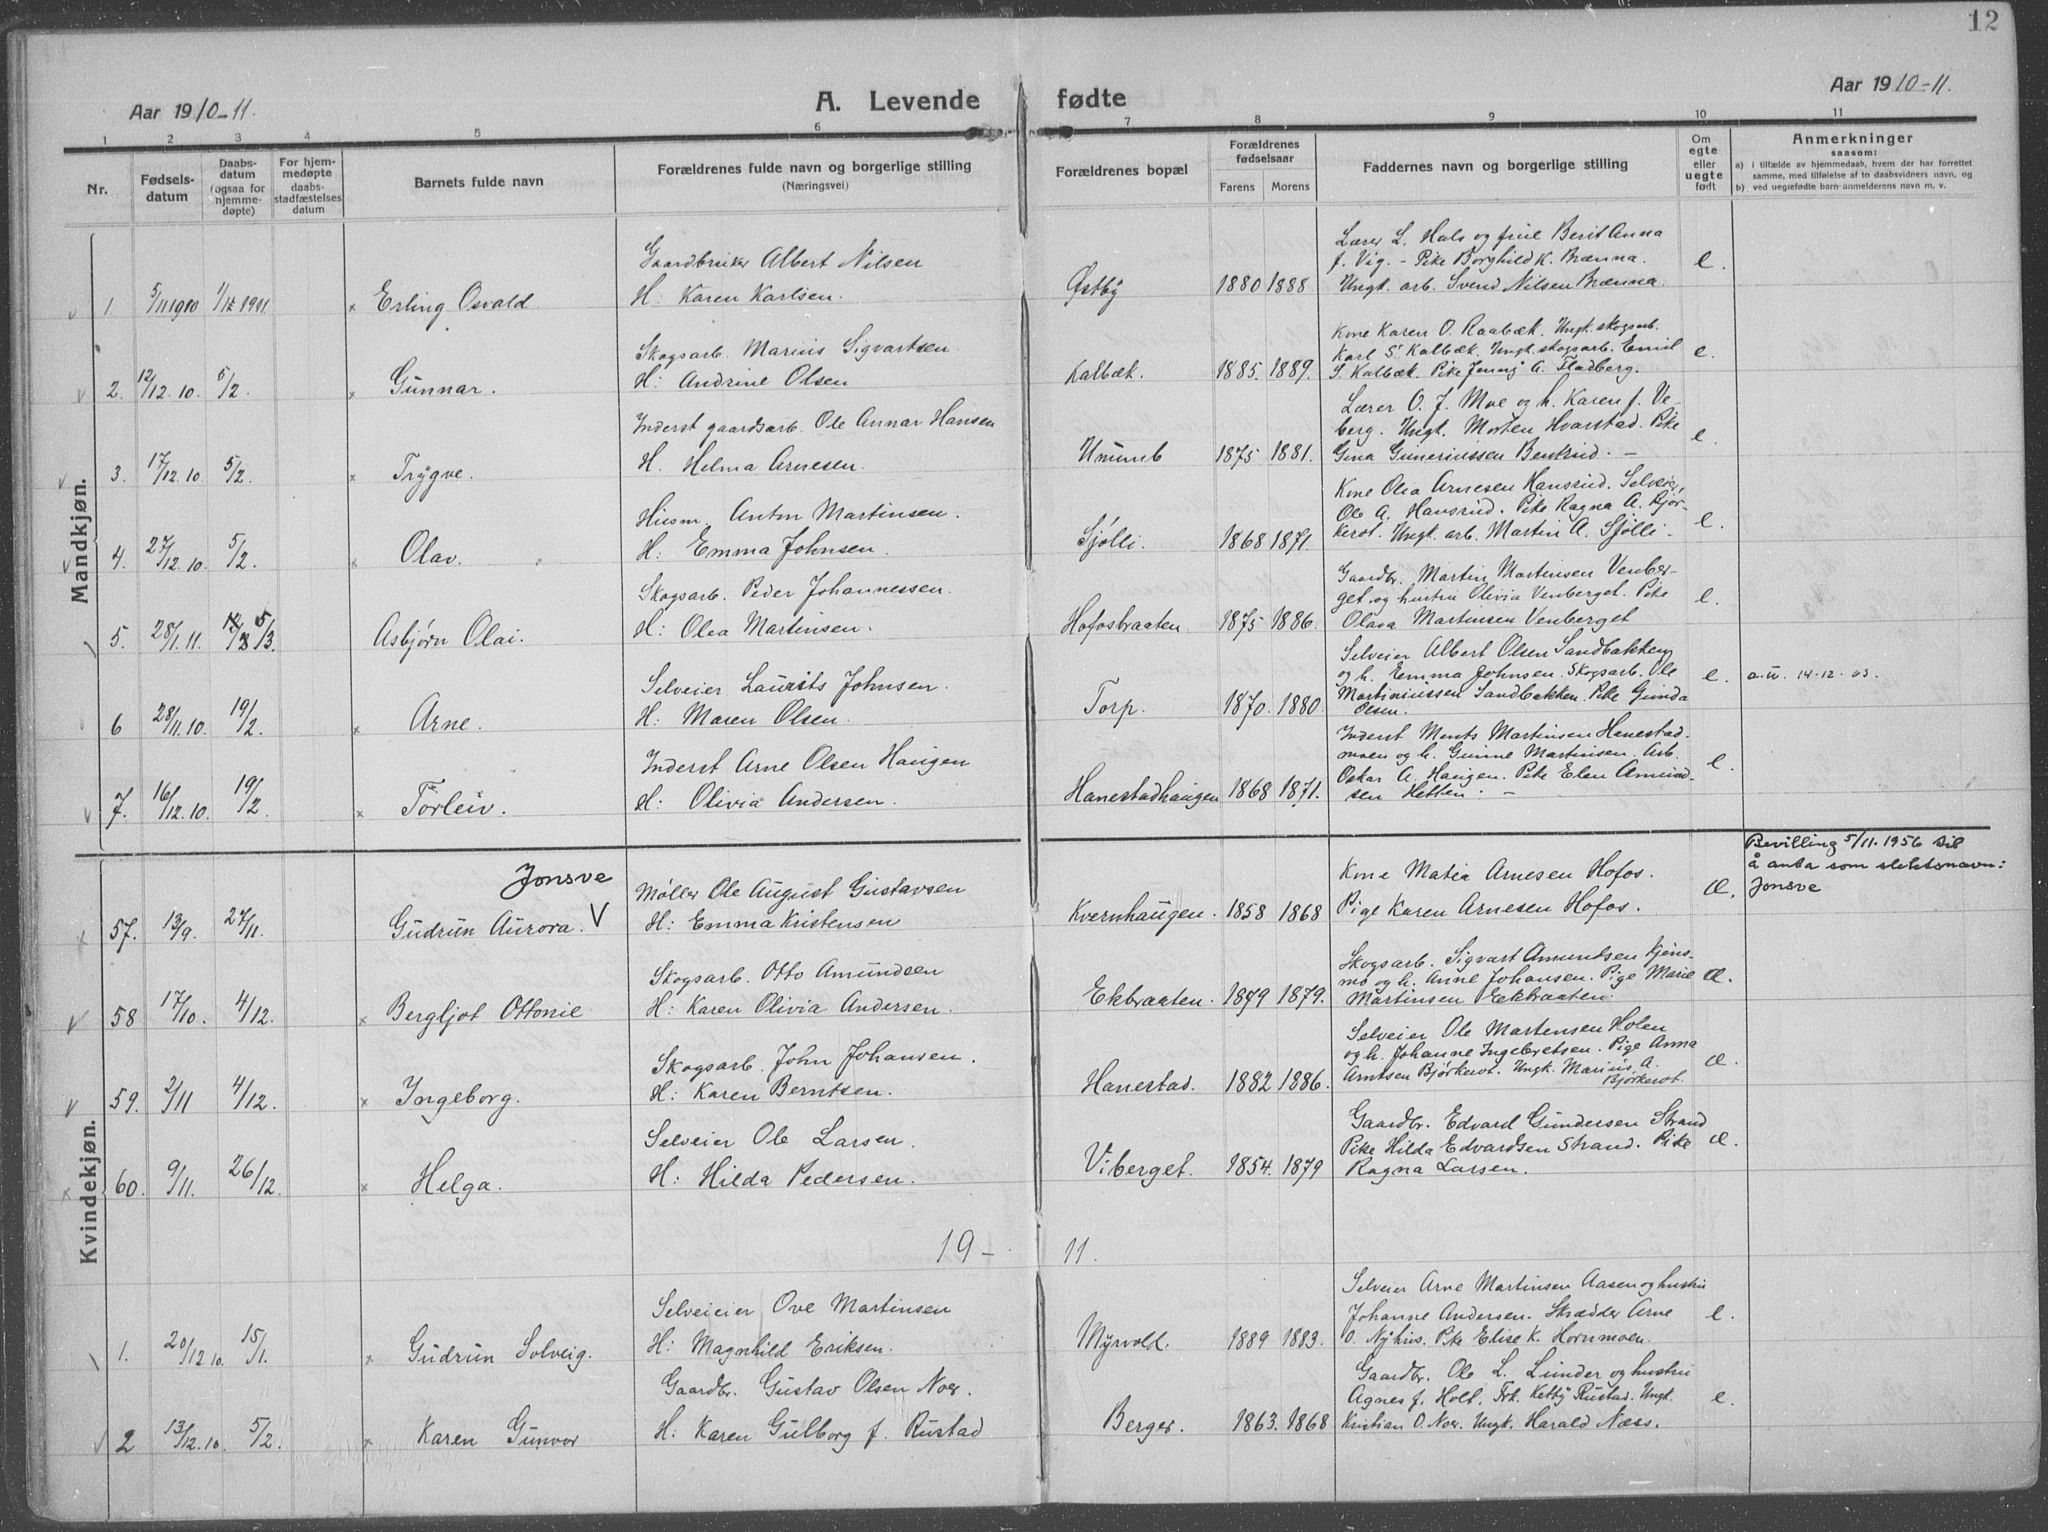 12
Aar 1910-11.
A. Levende fødte
Aar 1910-11.
1 2 3 4 5 6 7 8 9 10 11
Nr.
Fødsels-
datum
Daabs-
datum
(ogsaa for
hjemme-
døpte)
For hjem-
medøpte
daabs-
stadfæstelses
datum
Barnets fulde navn
Forældrenes fulde navn og borgerlige stilling
(Næringsvei)
Forældrenes bopæl
Forældrenes
fødselsaar
Farens Morens
Faddernes navn og borgerlige stilling
Om
egte
eller
uegte
født
Anmerkninger
saasom:
a) i tilfælde av hjemmedaab, hvem der har forrettet
samme, med tilføielse af to daabsvidners navn, og
b) ved uegefødte barn-anmelderens navn m. v.
Mandkjøn.
Gaardbruker Albert Nilsen
1 5/11 1910 Erling Osvald H: Karen Karlsen.
Østby 1880 1888
Lærer L. Hals og frue Berit Anna
f. Vig. - Pike Borghild K. Brænna.
Ungk. arb. Svend Nilsen Brænna.
e.
Skogsarb. Marius Sigvartsen
2. 12/12. 10. 5/2. Gunnar. H: Andrine Olsen
Kalbæk. 1885. 1889.
Kone Karen O. Raabæk. Ungk. skogsarb.
Karl S. Kalbæk. Ungk. skogsarb. Emil
S. Kalbæk. Pike Jenny A. Fladberg.
e.
Inderst gaardsarb. Ole Annar Hansen
3. 17/12. 10 5/2. Trygve. H. Helma Arnesen.
Ununb 1875 1881.
Lærer O. J. Moe og h. Karen f. Ve-
berg. Ungk. Morten Hvarstad. Pike
Gina Gunerinssen Bentrud. -
e.
Husm. Anton Martinsen.
4. 27/12. 10. 5/2. Olav. H: Emma Johnsen.
Sjølli. 1868 1871.
Kone Olia Arnesen Hansrud. Selveier,
Ole A. Hansrud. Pike Ragna A. Bjør-
kerot. Ungk. arb. Martin A. Sjølli.
e.
Skogsarb. Peder Johannessen.
5. 28/1. 11. 5/3. Asbjørn Olai. H: Olea Martinsen.
Hofosbraaten. 1875 1886.
Gaardbr. Martin Martinsen Venber-
get og hustru Olivia Venberget. Pike
Olava Martinsen Venberget
e.
Selveier Laurits Johnsen.
6 28/11. 10. 19/2. Arne. H: Maren Olsen.
Torp. 1870. 1880.
Selveier Albert Olsen Sandbakken
og h. Emma Johnsen. Skogsarb. Ole
Martiniussen Sandbakken. Pike Gunda
Olsen.
e. a.u. 14-12. 03.
Inderst Arne Olsen Haugen
7. 16/12. 10. 19/2. Torleiv. H: Olivia Andersen.
Hanestadhaugen 1868 1871.
Inderst Ments Martinsen Hanestad-
moen og h. Gunne Martinsen. Arb.
Oskar A. Haugen. Pike Elen Amund-
sen Hetten. -
e.
Kvindekjøn.
Jonsve
Møller Ole August Gustavsen
57. 13/9. 27/11. Gudrun Aurora. V H: Emma Kristensen
Kvernhaugen. 1858 1868
Kone Matea Arnesen Hofos.
Pige Karen Arnesen Hofos.
Æ.
Bevilling 5/11. 1956 til
å anta som slektsnavn:
Jonsve
Skogsarb. Otto Amundsen
58 17/10. 4/12. Bergljot Ottonie H: Karen Olivia Andersen.
Ekbraaten. 1879 1879.
Skogsarb. Sigvart Amundsen Kjens-
mo og h. Anne Johansen. Pige Marie
Martinsen Ekbraaten.
Æ.
Skogsarb. John Johansen.
59. 2/11 4/12. Ingeborg. H: Karen Berntsen.
Hanestad. 1882 1886.
Selveier Ole Martensen Holen
og h. Johanne Ingebretsen. Pige Anna
Arntsen Bjørkerot. Ungk. Marius A.
Bjørkerot.
Æ.
Selveier Ole Larsen.
60. 9/11. 26/12. Helga. H: Hilda Pedersen.
Viberget. 1854. 1879
Gaardbr. Edvard Gundersen Strand
Pike Hilda Edvardsen Strand. Pike
Ragna Larsen.
Æ.
19 - 11.
Selveieier Ove Martinsen
1. 20/12 10. 15/1. Gudrun Solveig. H: Magnhild Eriksen.
Myrvold. 1889 1883.
Selveier Arne Martinsen Aasen og hustru
Johanne Andersen. Skrædder Arne
O. Nyhus. Pike Elise K. Hornmoen.
e.
Gaardbr. Gustav Olsen Noer.
2 13/12. 10. 5/2. Karen Gunvor H: Karen Gulborg f. Rustad
Berger. 1863. 1868
Gaardbr. Ole L. Lunder og hustru
Agnes f. Holt. Frk. Ketty Rustad. Ungk.
Kristian O. Noer. Ungk. Harald Næss.
e.